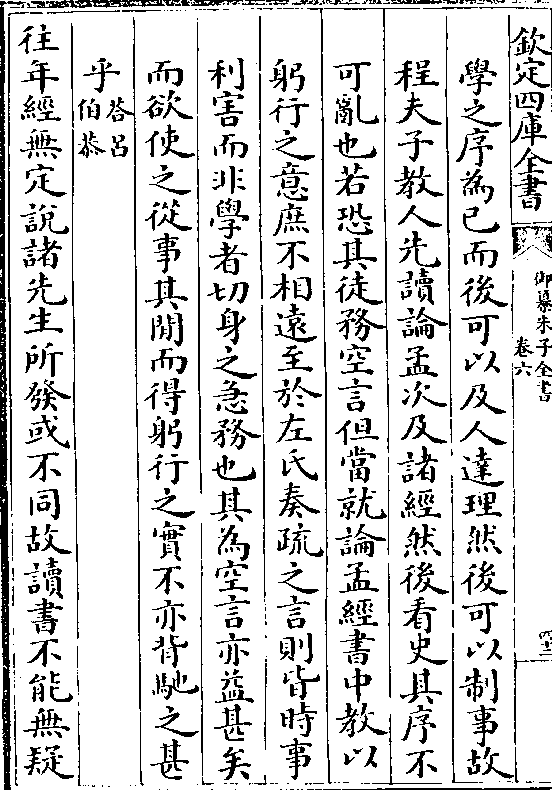 欽定四庫全書
御纂朱子全書
卷六
學之序為已而後可以及人達理然後可以制事故
程夫子教人先讀論孟次及諸經然後看史其序不
可亂也若恐其徒務空言但當就論孟經書中教以
躬行之意庶不相遠至於左氏奏疏之言則皆時事
利害而非學者切身之急務也其為空言亦益甚矣
而欲使之從事其間而得躬行之實不亦背馳之甚
乎
答呂
伯恭
往年經無定說諸先生所發或不同故讀書不能無疑